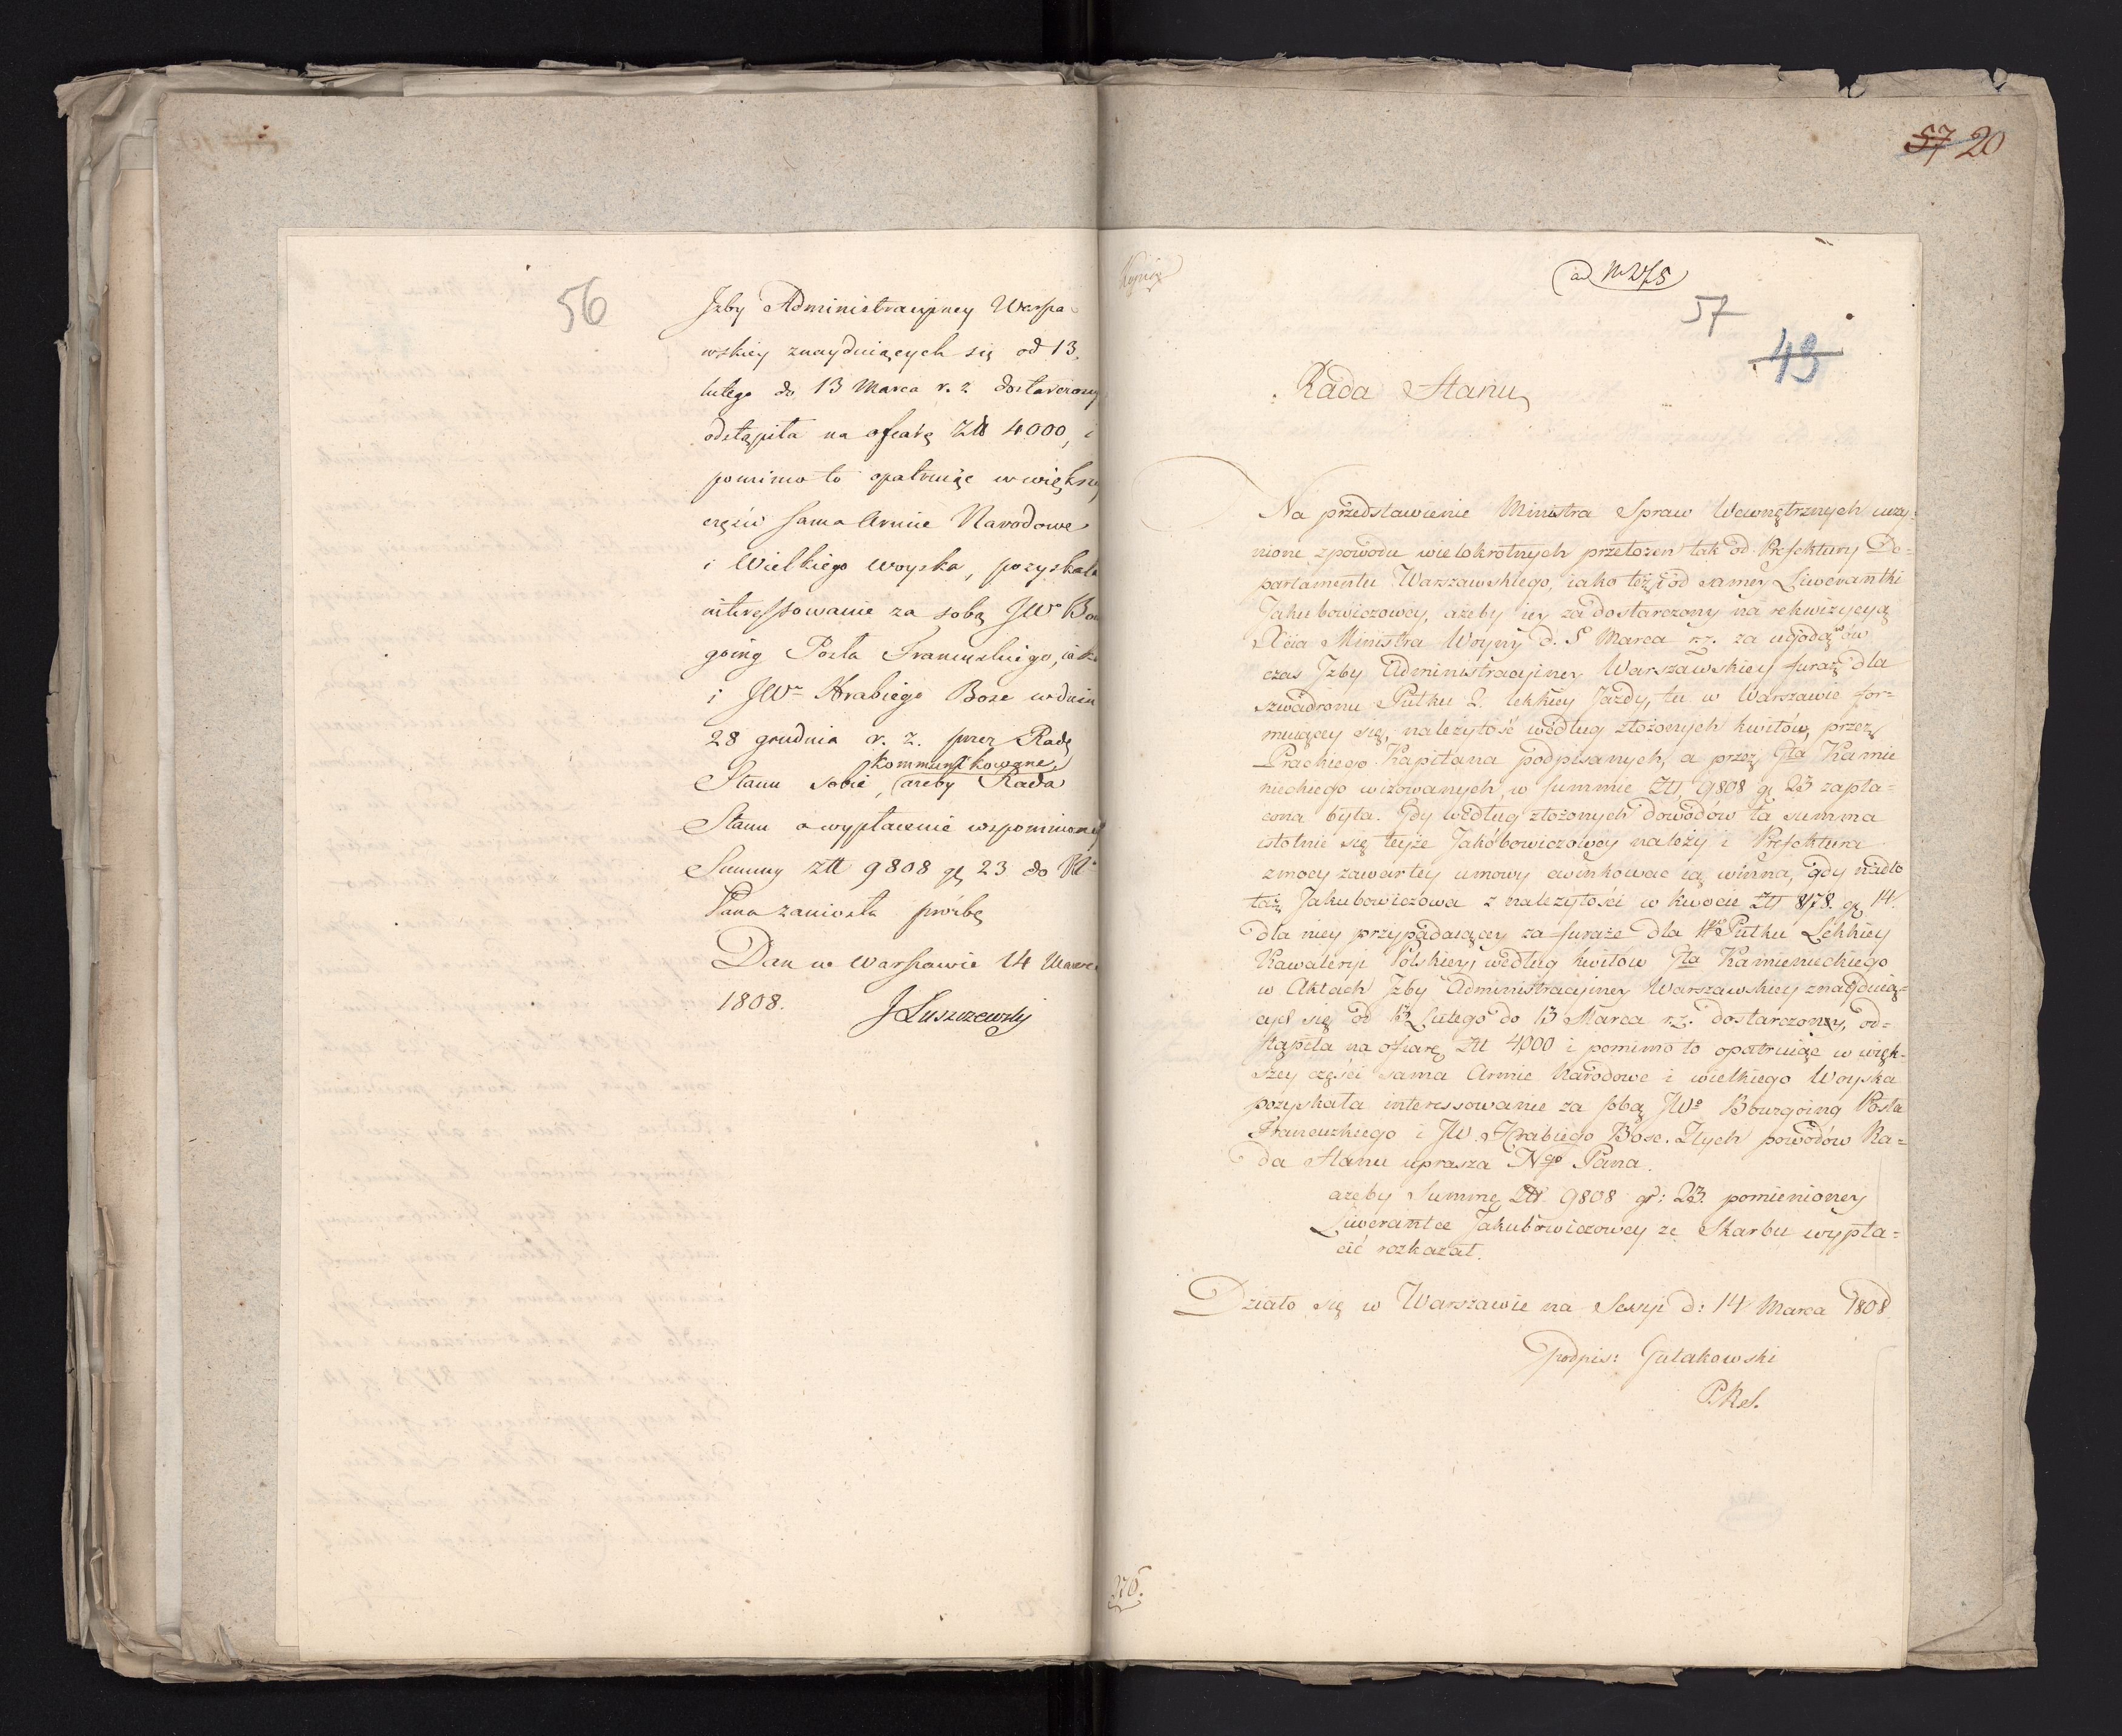 56
Jzby Administracyjney Warsza
wskiey znayduiących się od 13.
lutego do 13 Marca r. z. dostarczony
odstąpiła na ofiarę Ztt 4000, i
pomimo to opatruiąc w większey
części sama Armie Narodowe
i Wielkiego woyska, pozyskała
interessowanie za sobą JWo Bou
going Posła Francuskiego, iako
i JWo Hrabiego Bose w dniu
28 grudnia r. z. przez Radę
kommunikowane,
Stanu sobie, ażeby Rada
Stanu o wypłacenie wspomnioney
Summy ztt 9808 gr 23 do
Pana zaniosła prośbę
Dan w Warszawie 14 Marca
1808.
JŁuszczewski
57 20
Kopia
ad N 2/5
57
43
Rada Stanu
Na przedstawienie Ministra Spraw Wewnętrznych uczy-
nione z powodu wielokrotnych przełożeń tak od Prefektury De-
partamentu Warszawskiego, iako też i od samey Liwerantki
Jakubowiczowey, ażeby iey za dostarczony na rekwizycyą
Xcia Ministra Woyny d. 5 Marca r. z. za ugodą w ów
czas Jzby Administracyiney Warszawskiey furaż dla
szwadronu Pułku 2. lekkiey Jazdy, tu w Warszawie for-
muiącey się, należytość według złożonych kwitów, przez
Prackiego Kapitana podpisanych, a przez Gła Kamie
nieckiego wizowanych, w summie Ztt 9808 gr 23 zapła-
cona była. Gdy według złożonych dowodów ta summa
istotnie się teyże Jakóbowiczowey należy i Prefektura
z mocy zawartey umowy ewinkować ią winna, gdy nadto
taż Jakubowiczowa z należytości w kwocie Ztt 8178. gr 14.
dla niey przypadaiącey za furaże dla 1go Pułku Lekkiey
Kawaleryi Polskiey, według kwitów Gła Kamienieckiego
w Aktach Jzby Administracyiney Warszawskiey znayduią-
cych się od 13 Lutego do 13 Marca r. z. dostarczony, od-
stąpiła na ofiarę Ztt 4000 i pomimo to opatruiąc w więk-
szey części sama Armie Narodowe i wielkiego Woyska
pozyskała interessowanie za sobą JWo Bourgoing Posła
Francuzkiego i JW. Hrabiego Bose. Z tych powodów Ra-
da Stanu uprasza Ngo Pana.
ażeby Summę Ztt 9808 gr: 23. pomienioney
Liwerantce Jakubowiczowey ze Skarbu wypła-
cić rozkazał.
Działo się w Warszawie na Sessyi d: 14 Marca 1808
Podpis: Gutakowski
P.R.S.